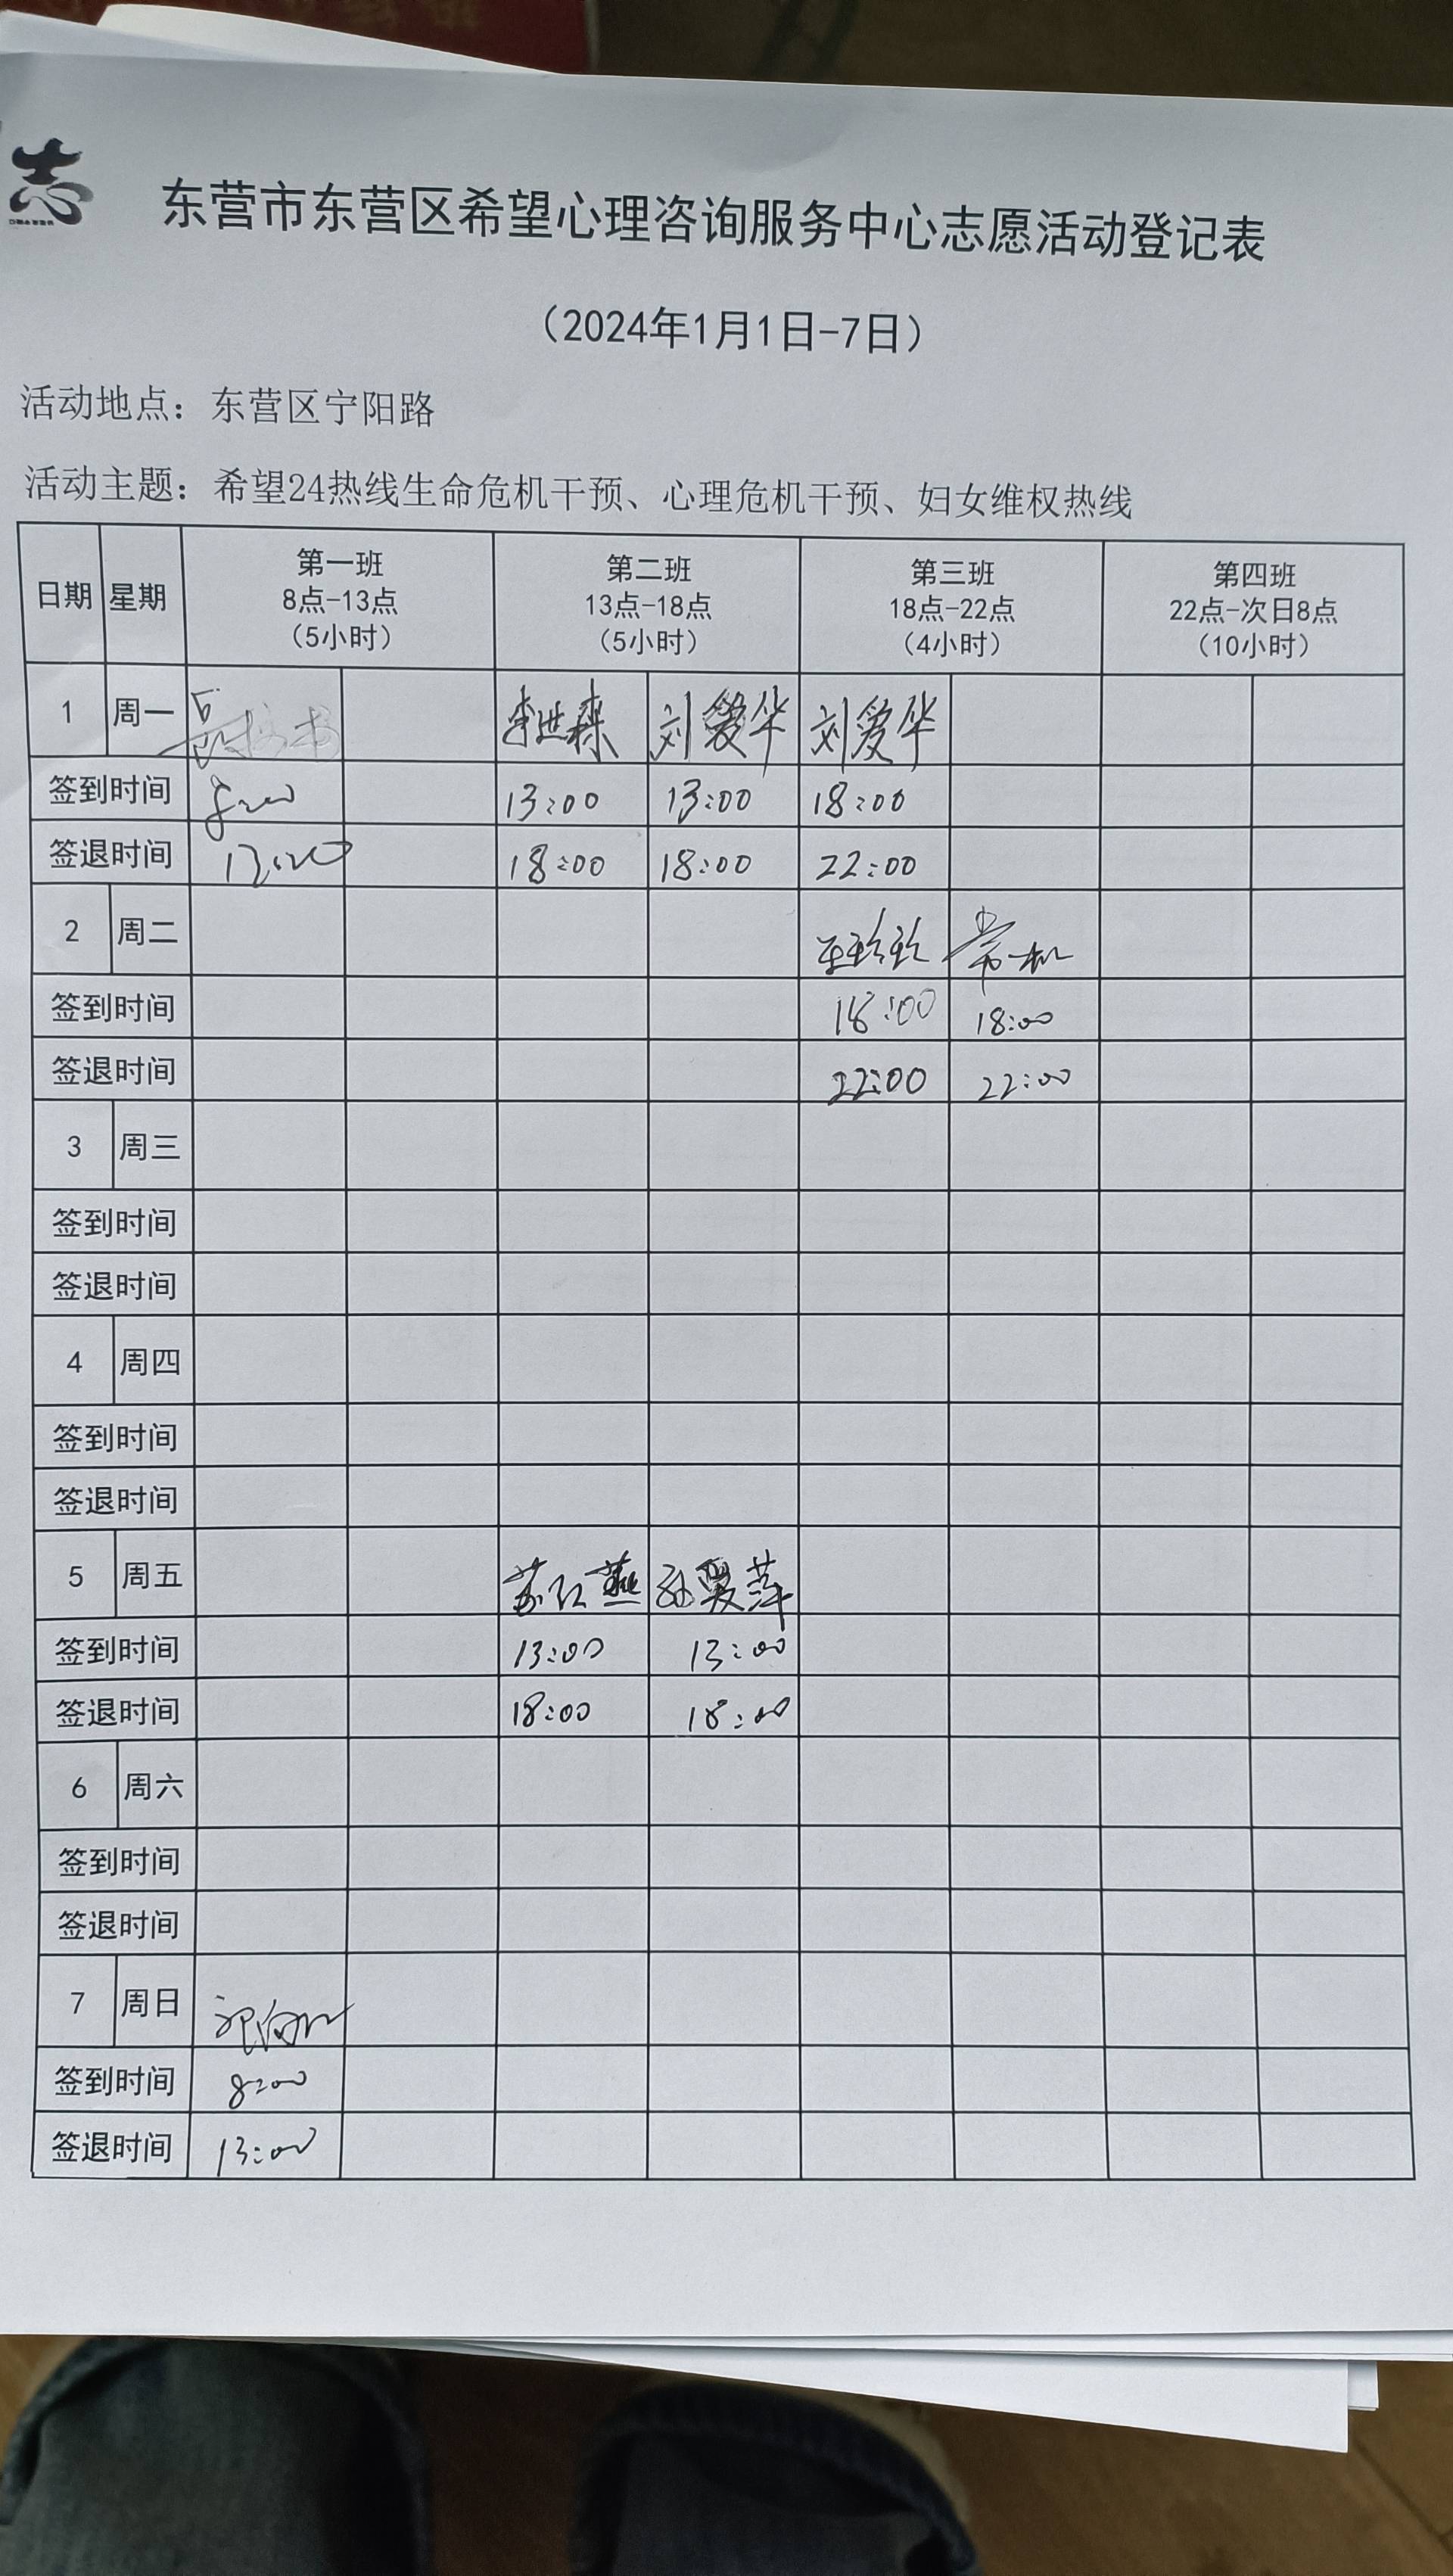 志
东营市东营区希望心理咨询服务中心志愿活动登记表
（2024年1月1日-7日）
活动地点：东营区宁阳路
活动主题：希望24热线生命危机干预、心理危机干预、妇女维权热线
日期 星期 第一班 8点-13点 （5小时） 第二班 13点-18点 （5小时） 第三班 18点-22点 （4小时） 第四班 22点-次日8点 （10小时）
1 周一 李进森 刘爱华 刘爱华
签到时间 8:00 13:00 13:00 18:00
签退时间 13:00 18:00 18:00 22:00
2 周二 常一机
签到时间 18:00 18:00
签退时间 22:00 22:00
3 周三
签到时间
签退时间
4 周四
签到时间
签退时间
5 周五 苏红燕 孙爱萍
签到时间 13:00 13:00
签退时间 18:00 18:00
6 周六
签到时间
签退时间
7 周日
签到时间 8:00
签退时间 13:00